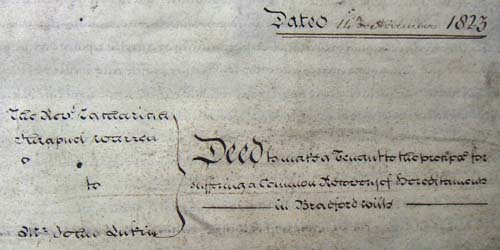 Dated 14th November 1823
The Revd. Zachariah
Shrapnel Warren
to
Mr. John
Deed to make a Tenant to the precipe for
suffering a Common Recovery of Hereditaments
in Bradford Wilts